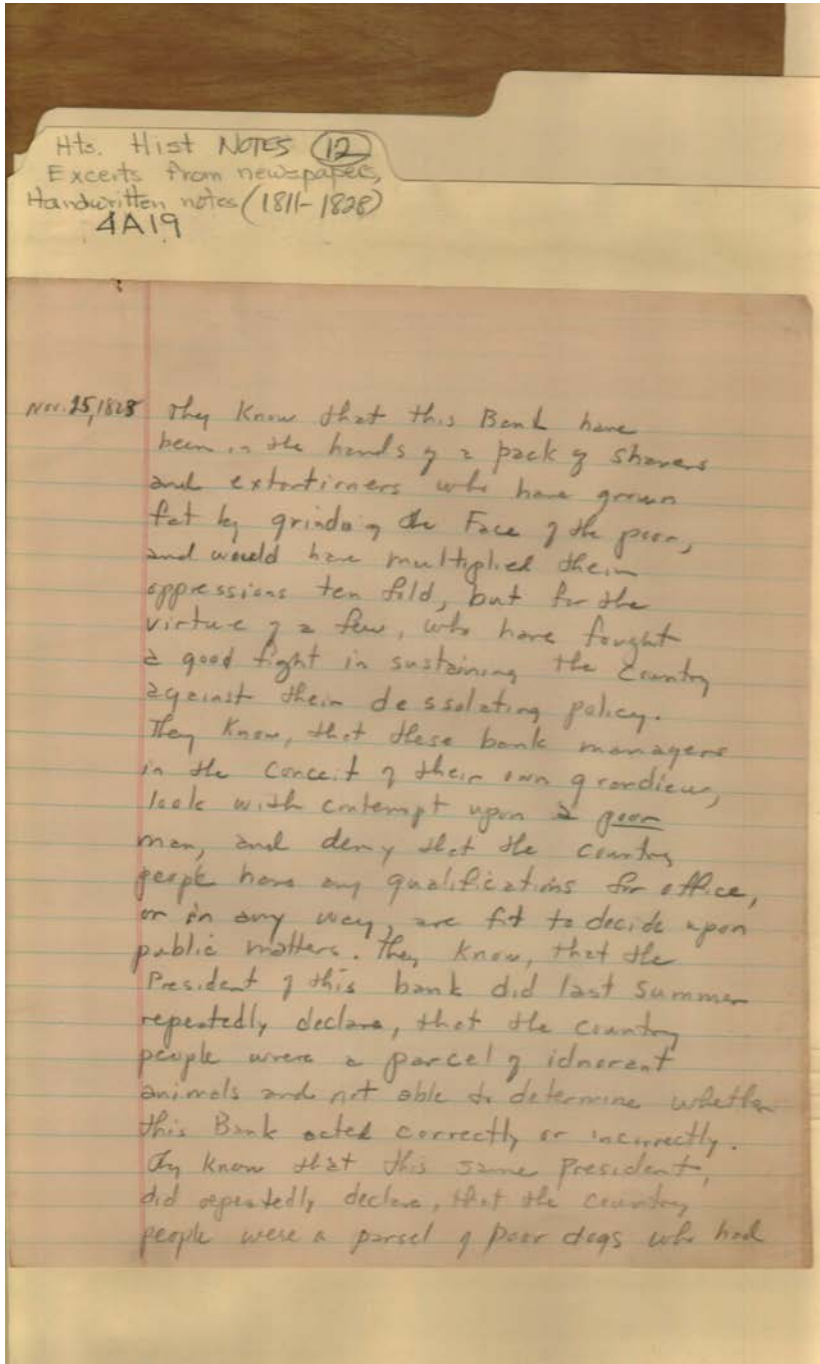 Hts. Hist NOTES 12
Excerts from newspapers,
Handwritten notes (1811-1828)
4A19
Nov. 25, 1828 They Know that this Bank have
been in the hands of a pack of shavers
and extortioners who have grown
fat by grinding the Face of the poor,
and would have multiplied their
oppressions ten fold, but for the
virtue of a few, who have fought
a good fight in sustaining the Country
against their dessolating policy.
They Know, that these bank managers
in the conceit of their own grandieur,
look with contempt upon a poor
man, and deny that the country
people have any qualifications for office,
or in any way, are fit to decide upon
public matters. They Know, that the
President of this bank did last Summer
repeatedly declare, that the country
people were a parcel of idnorant
animals and not able to determine whether
this Bank acted correctly or incorrectly.
They know that this same President,
did repeatedly declare, that the country
people were a parsel of poor dogs who had